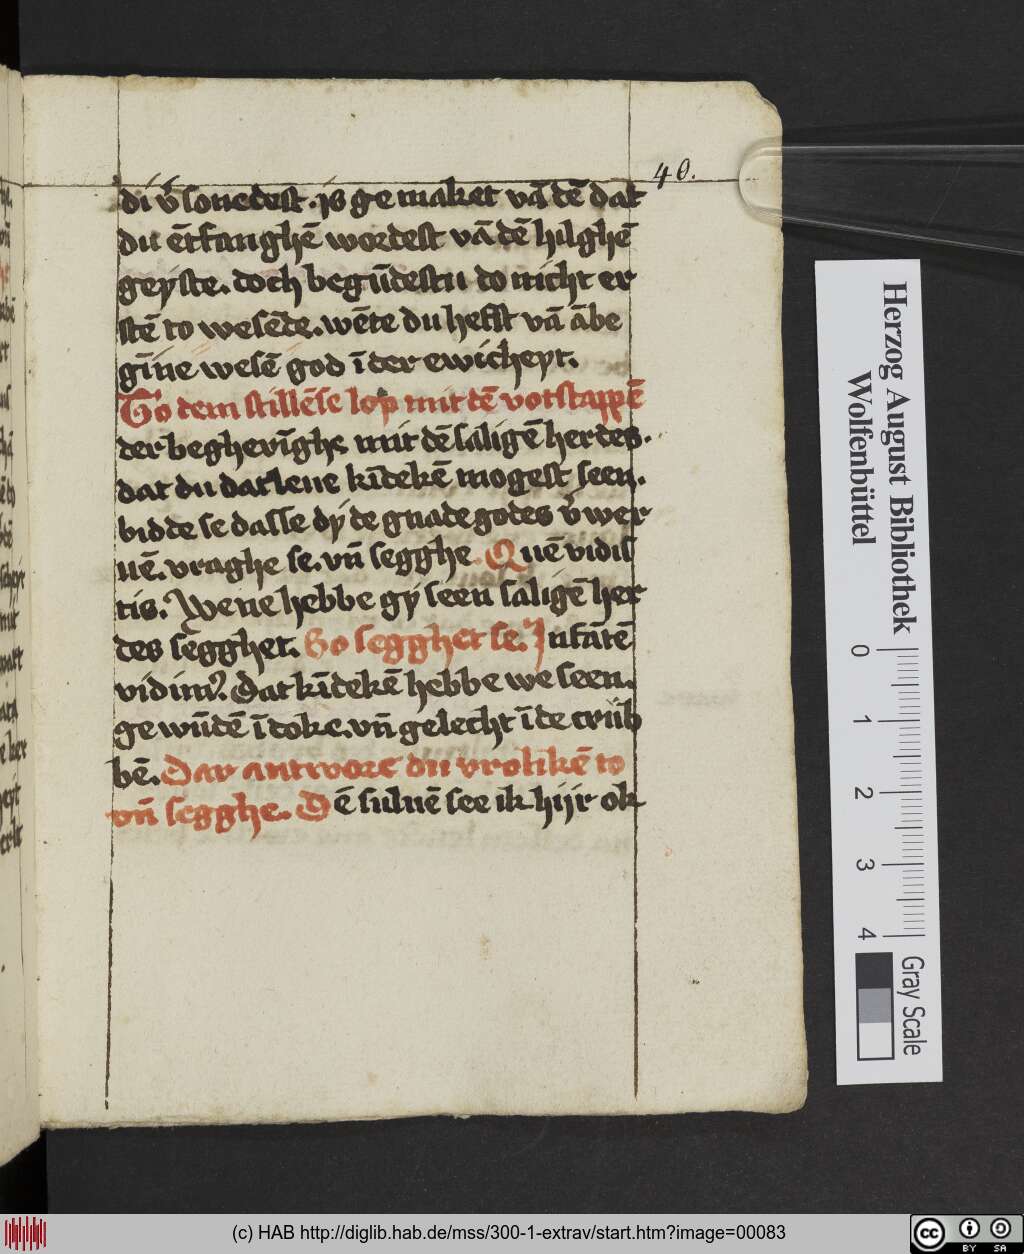 40.
di v̄sonedest. is gemaket vā dē dat
du ētfanghē wordest vā dē hilghē
geyste. doch begūdestu do nicht er
stē to wesēde. wēte du hefst vā ābe
gīne wesē god ī der ewicheyt.
So dem stillēse lop mit dē votstappē
der begherīghe mit dē saligē herdes.
dat du dat leue kīdekē mogest seen.
bidde se dasse dy de gnade godes v̄wer
uē. vraghe se. vn̄ segghe. Quē vidis
tis. Wene hebbe gy seen saligē her
des segghet. So segghet se. Infātē
vidim⁹. Dat kīdekē hebbe we seen.
gewūdē ī doke. vn̄ gelecht ī de crub
bē. Dar antwort du vrolikē to
vn̄ segghe. Dē suluē see ik hijr ok
Herzog August Bibliothek
Wolfenbüttel
0 1 2 3 4
Gray Scale
(c) HAB http://diglib.hab.de/mss/300-1-extrav/start.htm?image=00083
cc BY SA